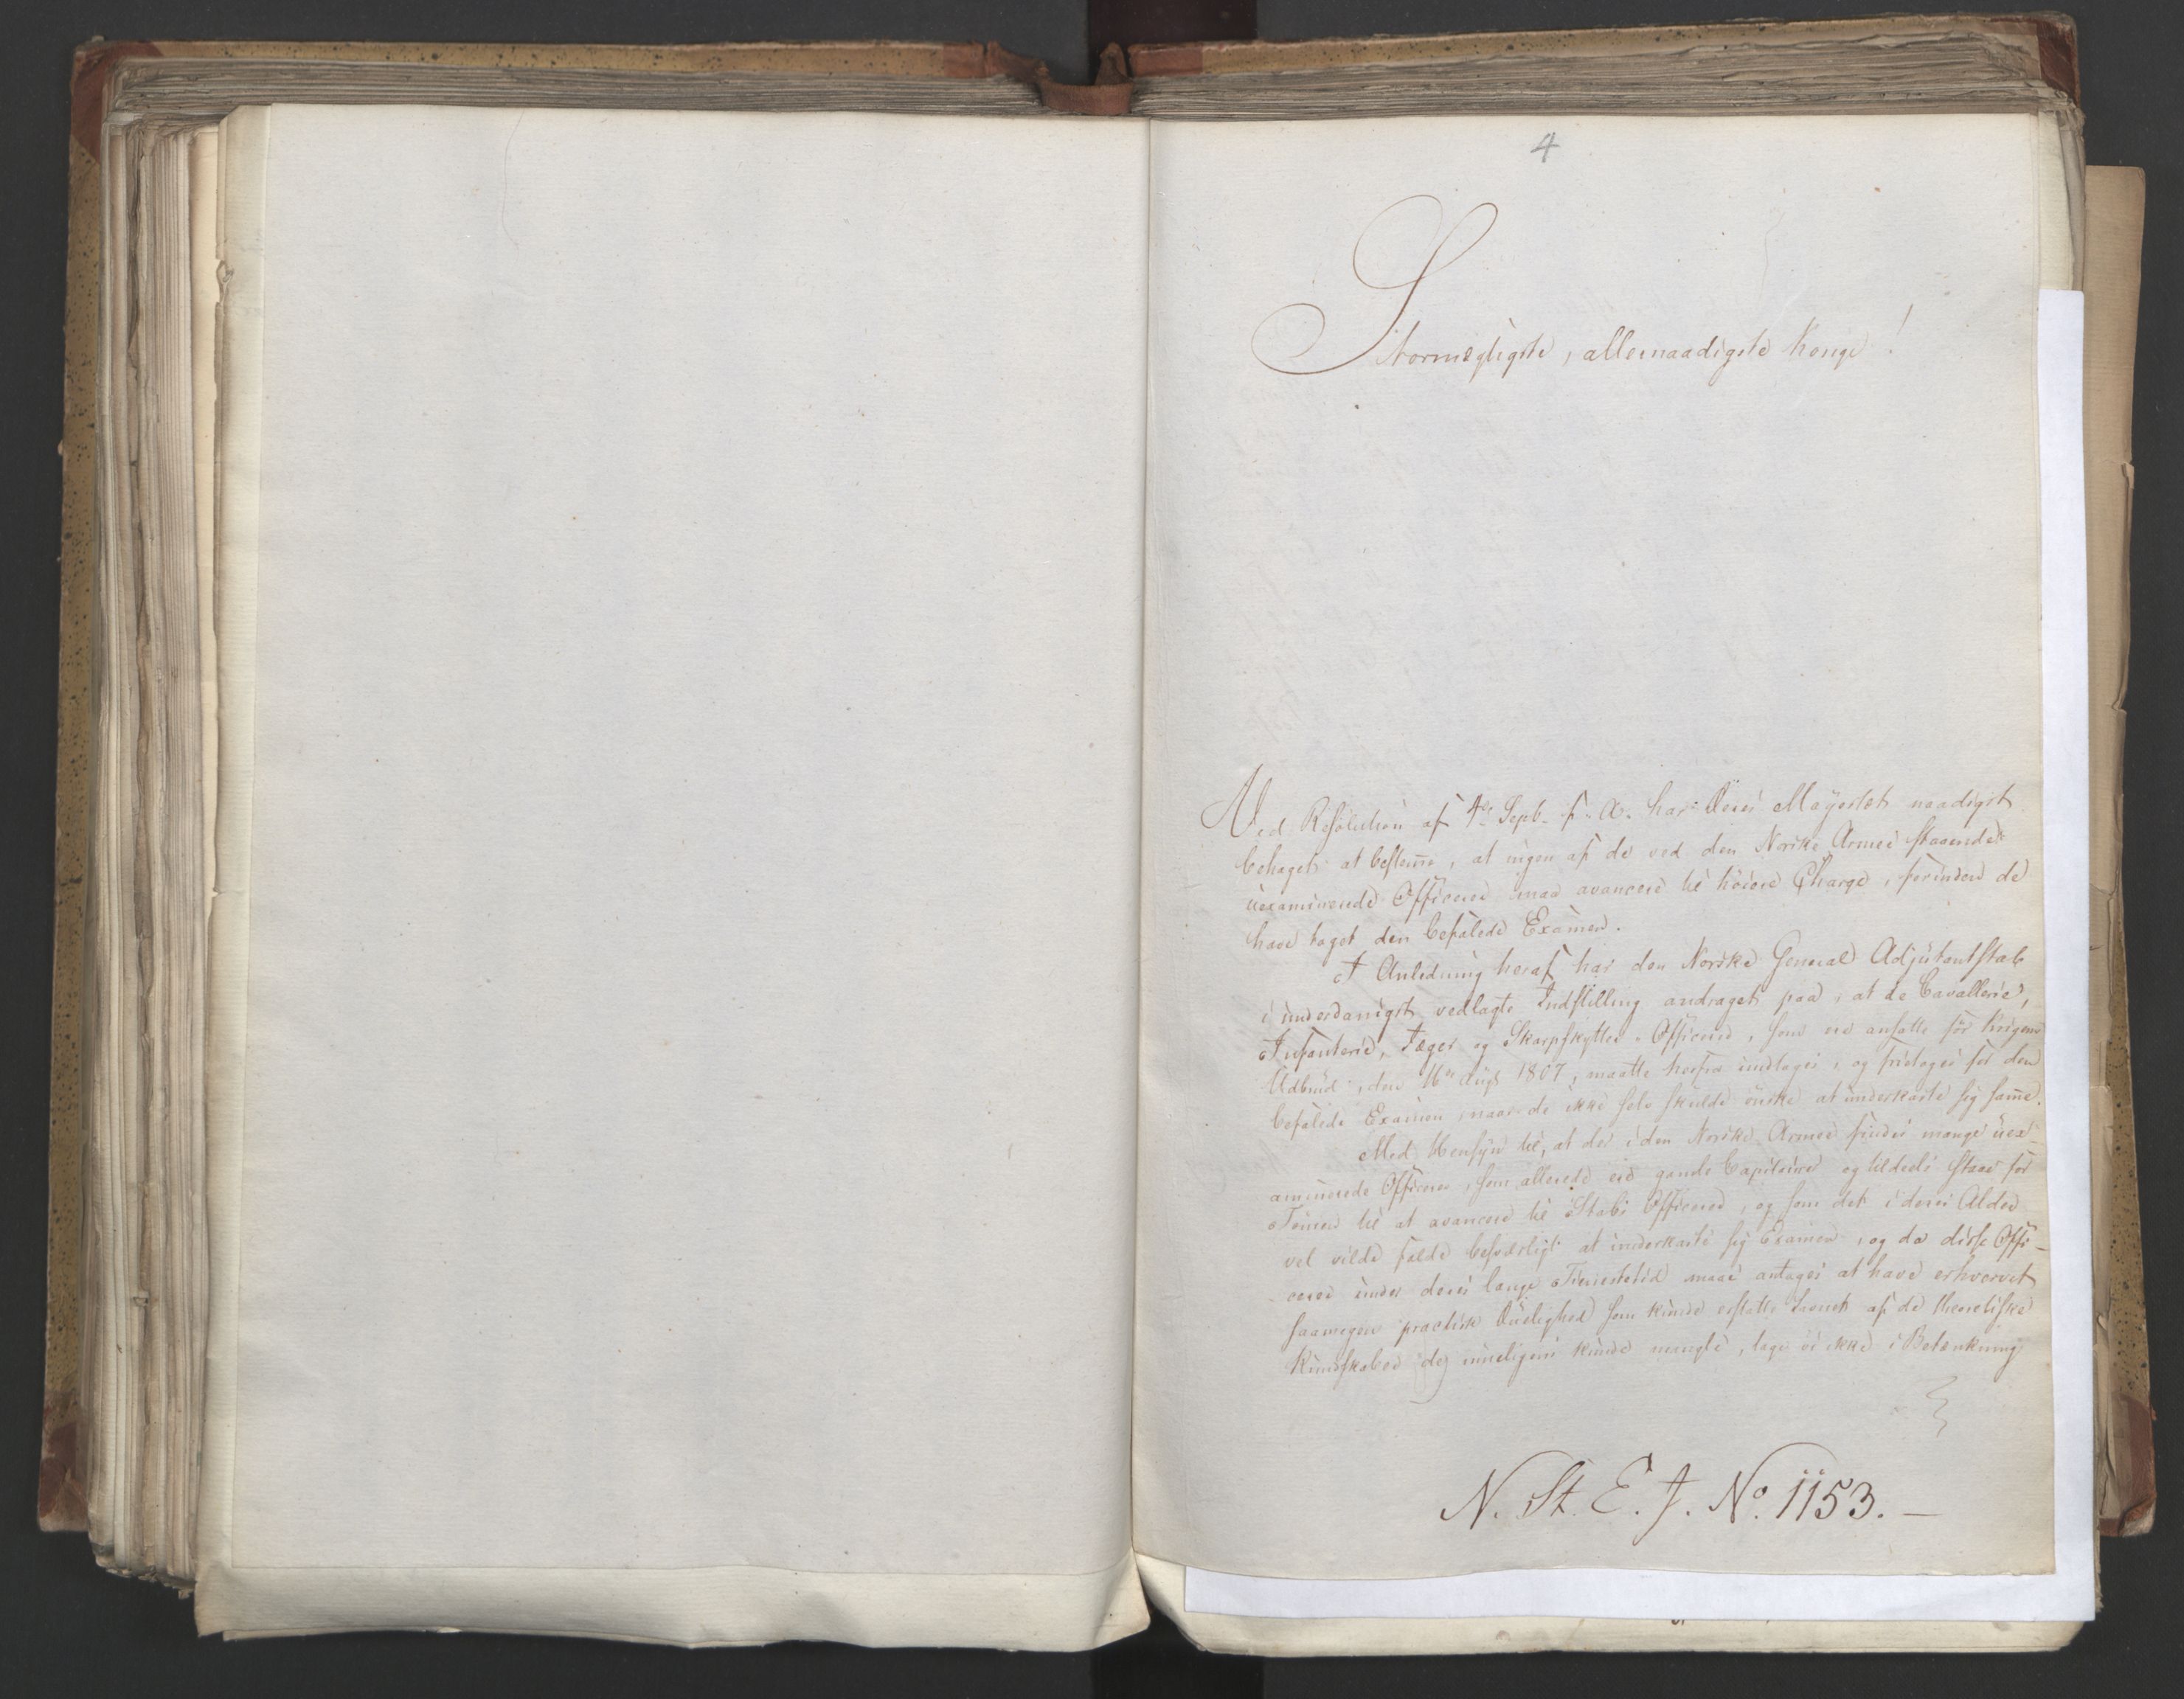 4
Stormægtigste, allernaadigste Konge!
Ved Resolution af 4de Septb. f. A. har Deres Mayestet naadigst
behaget at bestem̄e, at ingen af de ved den Norske Armee staaende
uexaminerede Officerer maa avancere til höiere Charge, forinden de
have taget den befalede Examen.
I Anledning heraf har den Norske General Adjutantstab
i underdanigst vedlagte Indstilling andraget paa, at de Cavallerie,
Infanterie, Jæger og Skarpskytter-Officerer, som ere ansatte för Krigens
Udbrud, den 16de Augst 1807, maatte herfra undtages, og fritages for den
befalede Examen, naar de ikke selv skulde önske at underkaste sig sam̄e.
Med Hensyn til, at der i den Norske Armee findes mange uex-
aminerede Officerer, som allerede ere gamle Capitainer og tildeels staae for
Touren til at avancere til Stabs Officerer, og som det i deres Alder
vel vilde falde besværligt at underkaste sig Examen, og da disse Offi-
cerer under deres lange Tienestetid maae antages at have erhvervet
saamegen practisk Duelighed som kunde erstatte Savnet af de theoretiske
Kundskaber de mueligens kunde mangle, tage vi ikke i Betænkning
N. St. E. J. No. 1153.